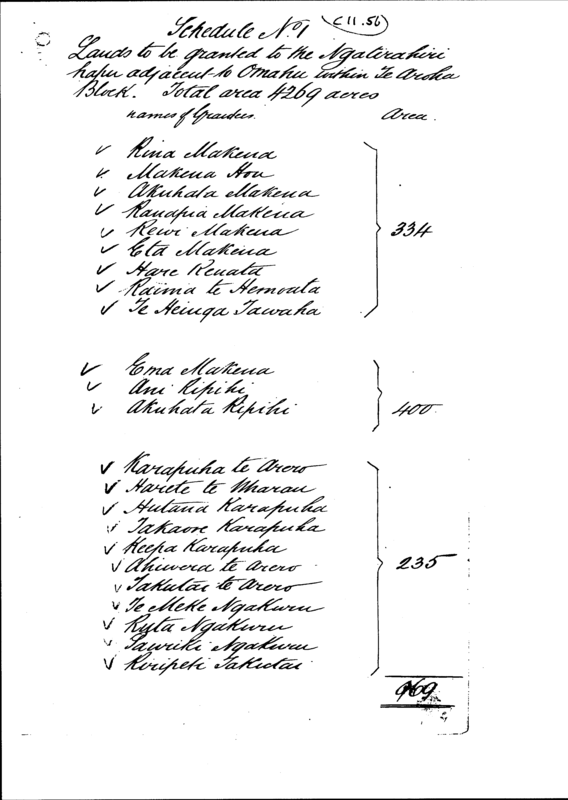 C 11.56
Schedule No 1
Lands to be granted to the Ngatirahiri
hapu adjacent to Omahu within Te Aroha
Block. Total area 4269 acres
names of Grantees. Area.
✓ Rina Makena
✓ Makena Hou
✓ Akuhata Makena
✓ Makena
✓ Rewi Makena
✓ Eta Makena
✓ Hare Renata
✓ Raima te
✓ Te Heinga Tawaha
334
✓ Ema Makena
✓ Ani Ripihi
✓ Akuhata Ripihi
400
✓ Karapuha te Arero
✓ Harete te Wharau
✓ Hutana Karapuha
✓ Takaore Karapuha
✓ Keepa Karapuha
✓ Ahiwera te Arero
✓ Takutai te Arero
✓ Te Meke Ngakuru
✓ Ruta Ngakuru
✓ Tawriki Ngakuru
✓ Takutai
235
969